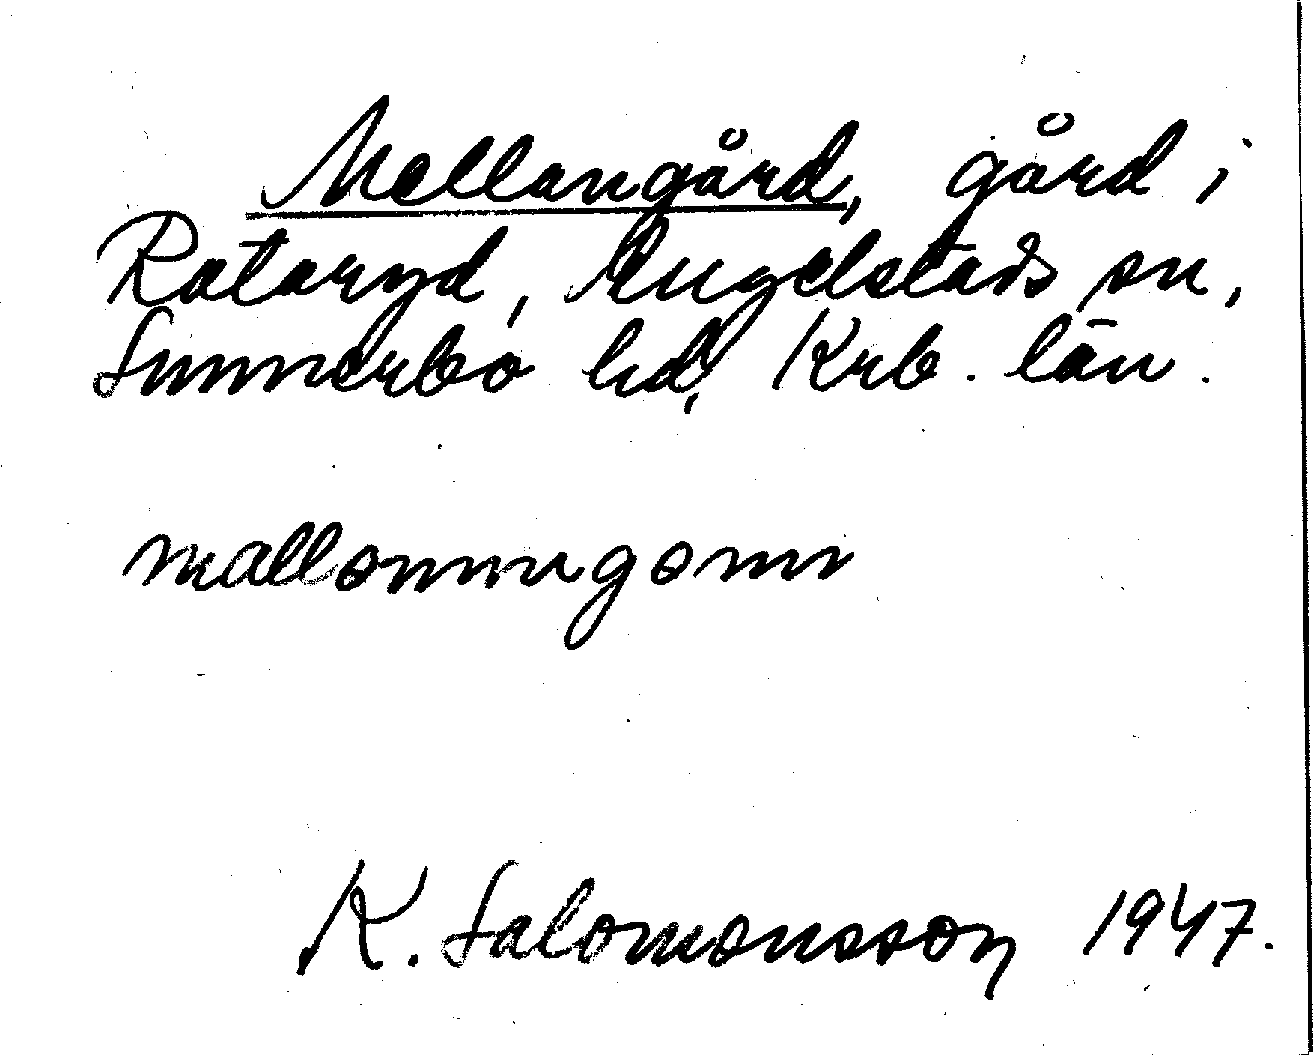 Mellangård, gård i
Rataryd, Angelstads sn,
Sunnerbo hd, Krb. län.
mallomngomn
K. Salomonsson 1947.